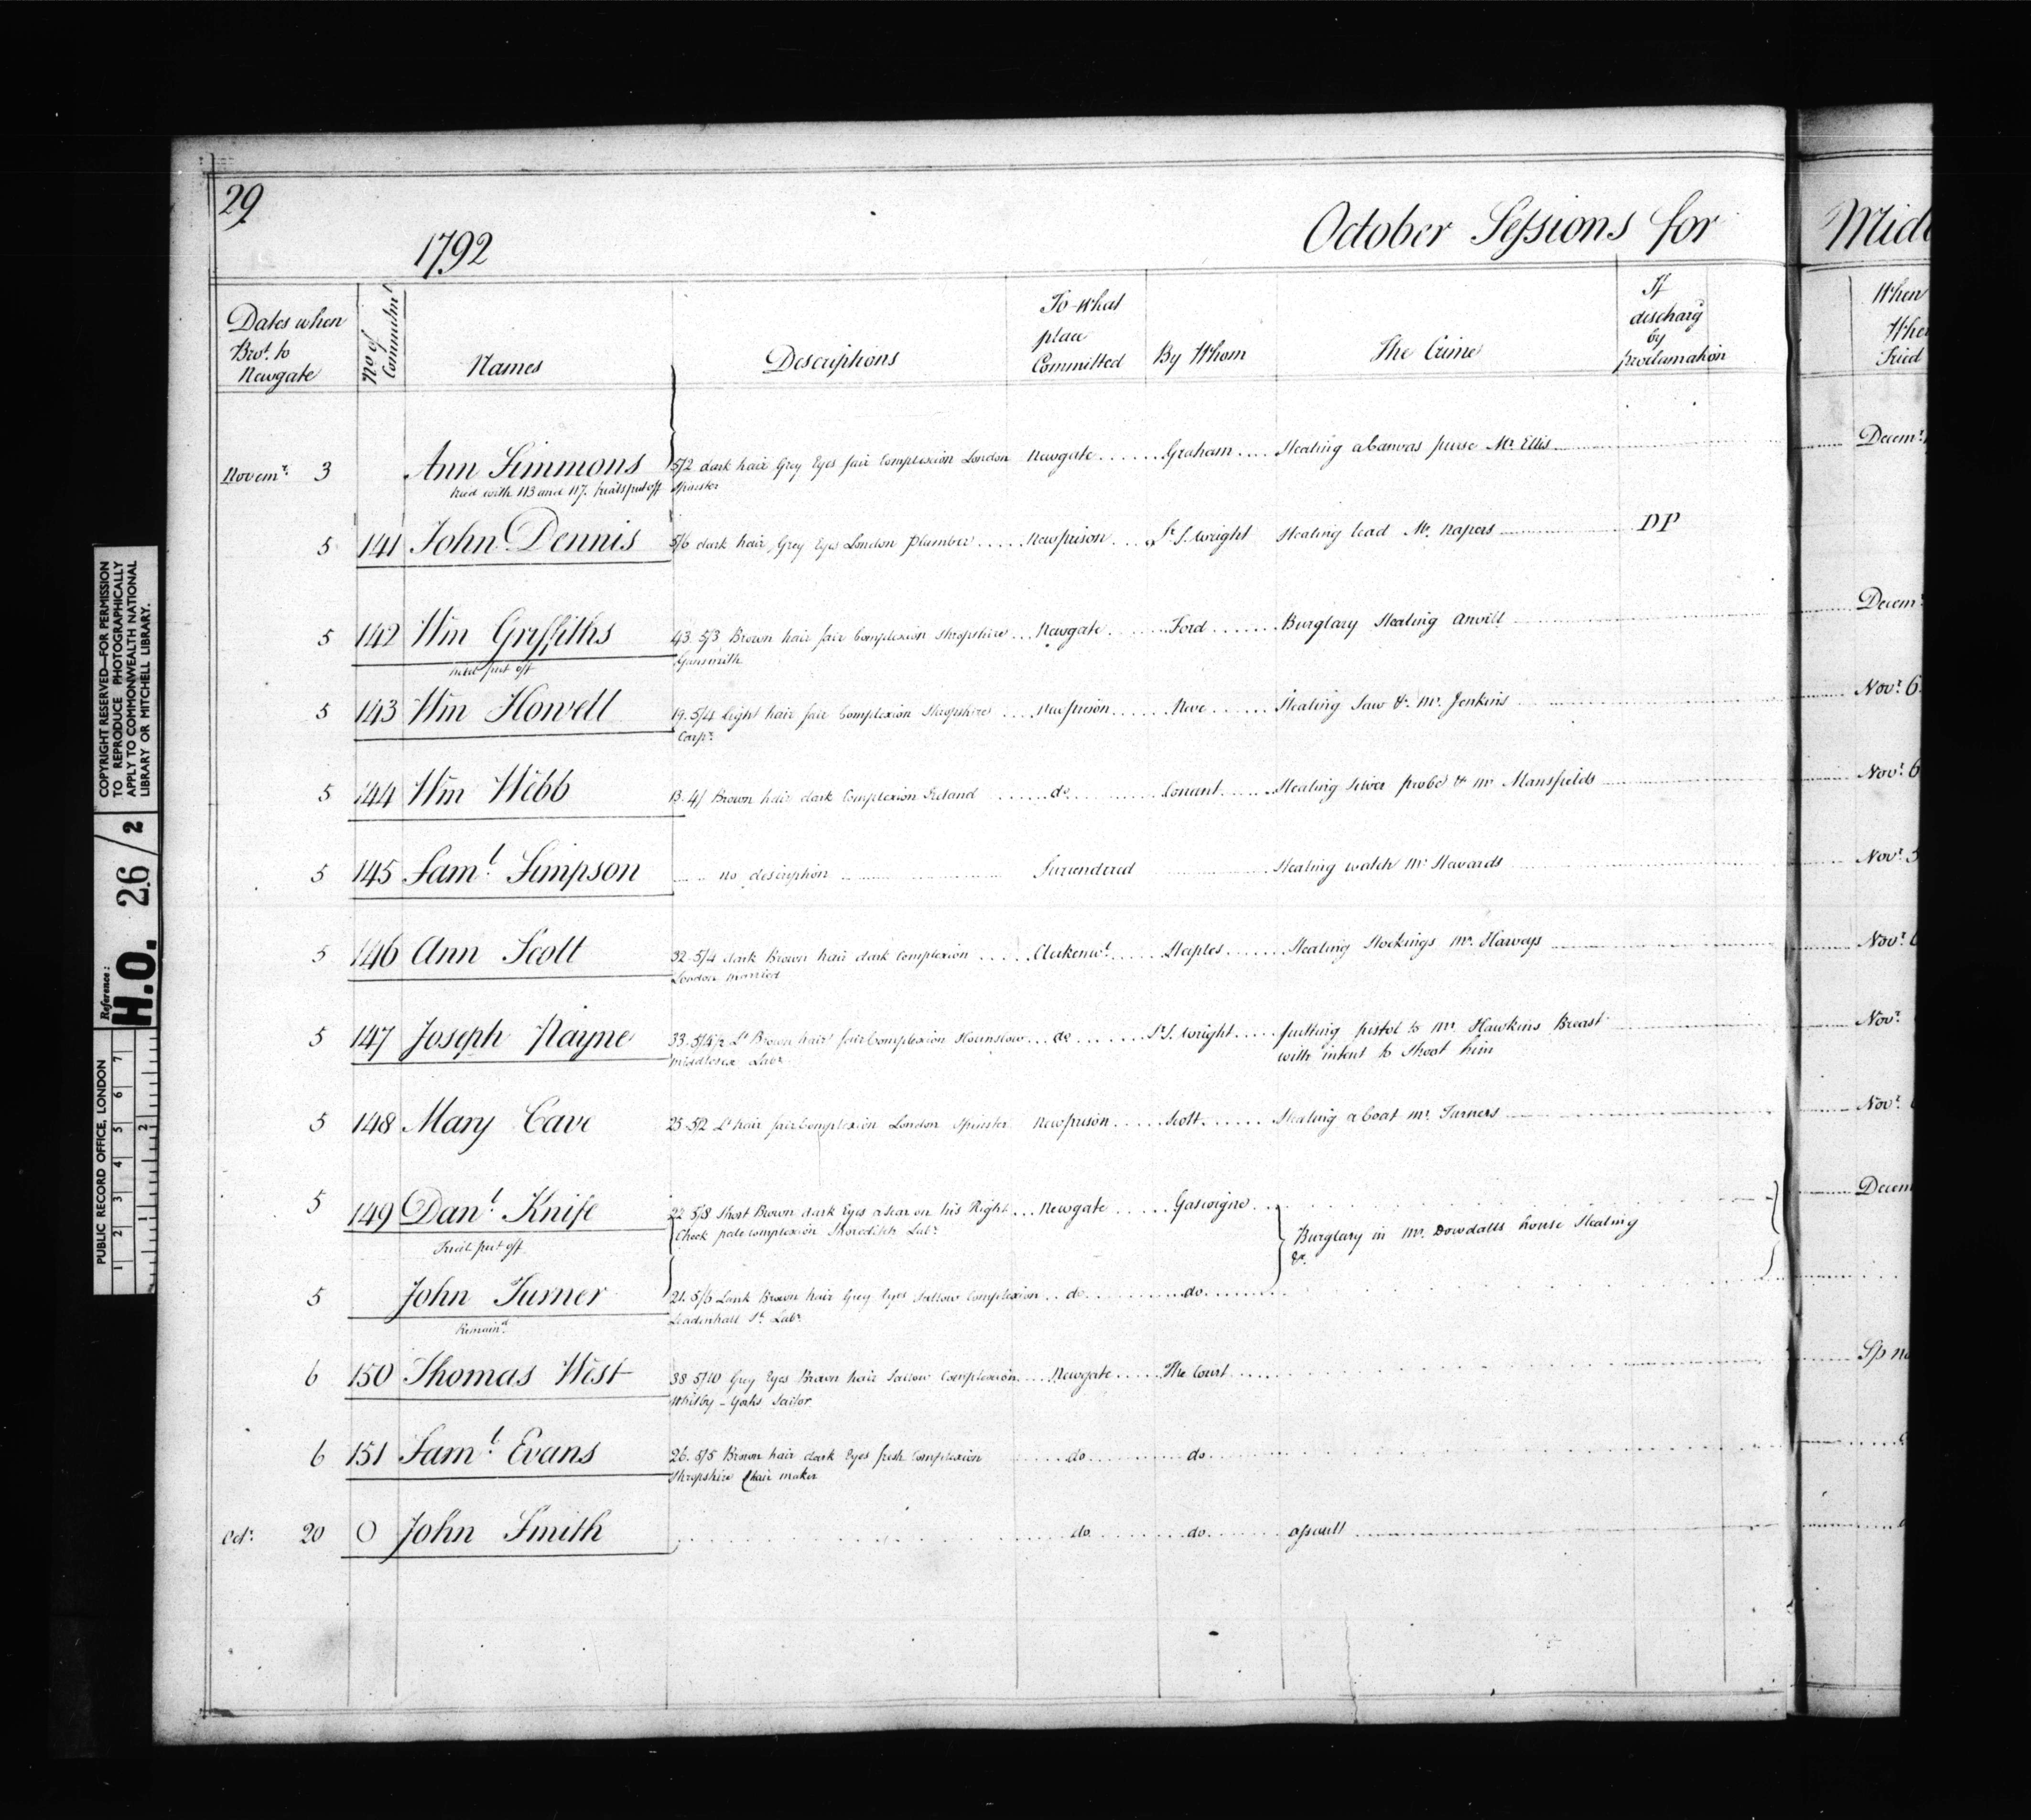 29
1792
October Sessions for
Mid
Dates when
Brot. to
Newgate
No of
Commitmt
Names
Descriptions
To what
place
Committed
By Whom
The Crime
If
discharg
by
proclamation
When
Whe
Tried
Novemr. 3 Ann Simmons 5/2 dark hair Grey Eyes fair Complexion London Newgate Graham Stealing a Canvas purse Mr Ellis Decemr.
tried with 113 and 117. trials put off Spinster
5 141 John Dennis 5/6 dark hair Grey Eyes London Plumber Newprison Sr S. Wright Stealing lead Mr. Napers DP
5 142 Wm Griffiths 43. 5/3 Brown hair fair Complexion Shropshire Newgate Ford Burglary Stealing Anvill Decemr
trial put off Gunsmith
5 143 Wm Howell 19. 5/4 light hair fair Complexion Shropshire Newprison Neve Stealing Saw &c. Mr. Jenkins Novr. 6
Carpr.
5 144 Wm Webb 13. 4/ Brown hair dark Complexion Ireland do Conant Stealing Silver probe &c Mr Mansfields Novr. 6
5 145 Saml. Simpson no description Surrendered Stealing watch Mr Stewards Novr. 5
5 146 Ann Scott 32. 5/4 dark Brown hair dark Complexion Clerkenwl. Staples Stealing Stockings Mr. Harveys Novr. 6
London Married
5 147 Joseph Payne 33. 5/4½ Lt Brown hair fair Complexion Hounslow do Sr S. Wright putting pistol to Mr. Hawkins Breast Novr.
Middlesex Labr. with intent to Shoot him
5 148 Mary Cave 25. 5/2 Lt hair fair Complexion London Spinster Newprison Scott Stealing a Coat Mr. Turners Novr.
5 149 Danl. Knife 22 5/8 Short Brown dark Eyes a Scar on his Right Newgate Gascoigne Decem
Trial put off Cheek pale Complexion Shoreditch Labr. Burglary in Mr. Dowdalls house Stealing
&c.
5 John Turner 21. 5/6 Lank Brown hair Grey Eyes Sallow Complexion do do
Remaind. Leadenhall St. Labr.
6 150 Thomas West 38 5/10 Grey Eyes Brown hair Sallow Complexion Newgate The Court
Whitby - Yorks Sailor
6 151 Saml. Evans 26. 5/5 Brown hair dark Eyes fresh Complexion do do
Shropshire Chair maker
Octr. 20 O John Smith do do assault
COPYRIGHT RESERVED—FOR PERMISSION
TO REPRODUCE PHOTOGRAPHICALLY
APPLY TO COMMONWEALTH NATIONAL
LIBRARY OR MITCHELL LIBRARY.
Reference:
H.O. 26/2
PUBLIC RECORD OFFICE, LONDON
1 2 3 4 5 6 7
1 2